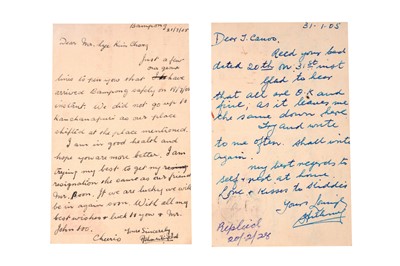 Dampang
Dear Mr. Lye Kim Choy,
Just a few
lines to you that have
arrived Dampang safely on
instant. We did not go up to
as our place
shifted at the place mentioned.
I am in good health and
hope you are more better. I am
trying my best to get my
resignation the same as our friend
Mr. If we are lucky we will
be in again soon. With all my
best wishes & luck to you & Mr.
John
Yours Sincerely
Cheerio
31-1-05
Dear J.
Recd your card
dated 20th on 31st inst
Glad to hear
that all are O.K and
fine, as it leaves me
the same down here
Try and write
to me often. Shall write
again.
my best regards to
self & rest at home.
Love & Kisses to Kiddies
Yours
Replied